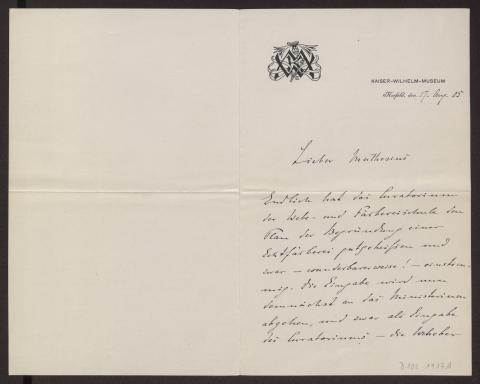 KAISER-WILHELM-MUSEUM
Krefeld, den 17. Aug. 05
Lieber Muthesius
Endlich hat das Curatorium
der Web- und Färbereischule den
Plan der Begründung einer
Echtfärberei gutgeheißen und
zwar – wunderbarerweise! – einstim-
mig. Die Eingabe wird nun
demnächst an das Ministerium
abgehen, und zwar als Eingabe
des Curatoriums – die Urheber
D 102-1917A